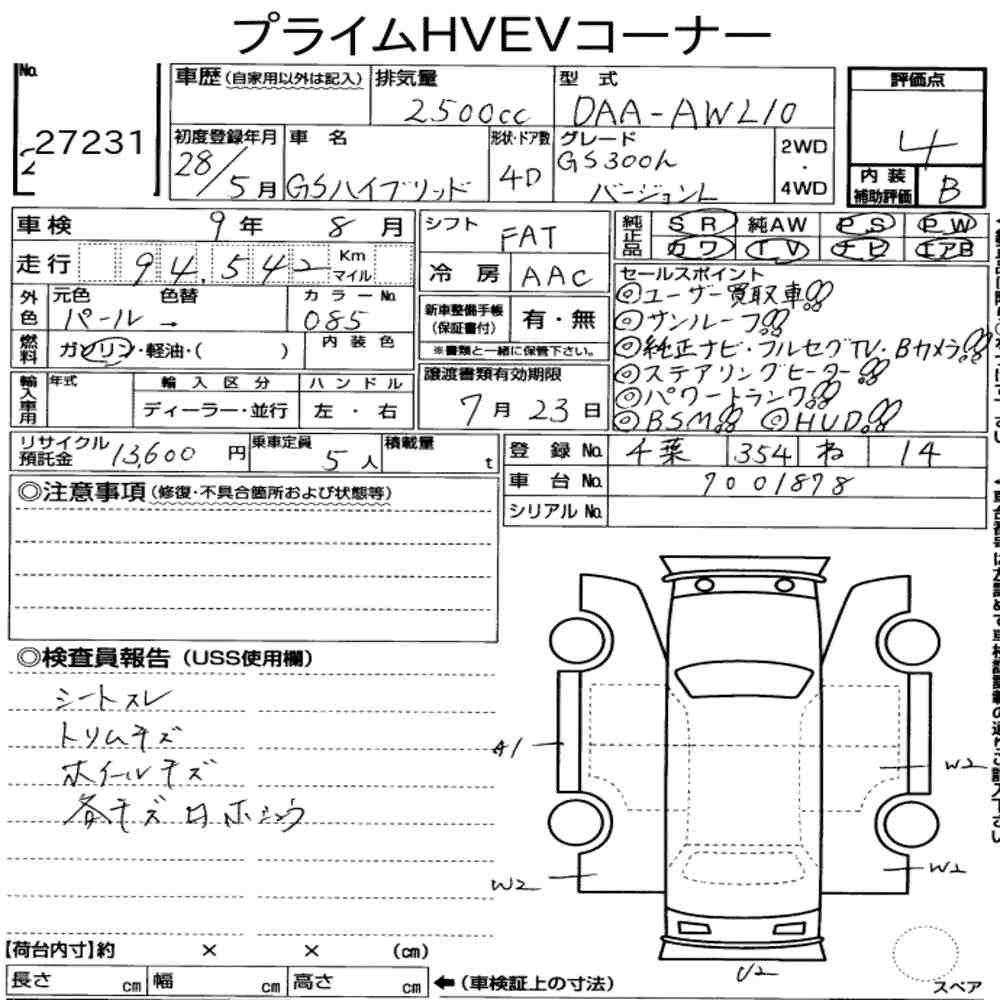 プライムHVEVコーナー
No.
27231
車歴(自家用以外は記入)
排気量
2500cc
型 式
DAA-AWL10
評価点
4
内装補助評価
B
初度登録年月
28/5月
車 名
GSハイブリッド
形状・ドア数
4D
グレード
GS300h
バージョンL
2WD
・
4WD
車検 9年 8月
走行 94,542 Km マイル
シフト
FAT
冷房 AAC
純正品 SR 純AW PS PW
カワ TV ナビ エアB
外色 元色 色替
パール →
カラーNo.
085
燃料 ガソリン・軽油・( )
内装色
新車整備手帳(保証書付) 有・無
※書類と一緒に保管下さい。
譲渡書類有効期限
7月23日
セールスポイント
◎ユーザー買取車!!
◎サンルーフ!!
◎純正ナビ・フルセグTV・Bカメラ!!
◎ステアリングヒーター!!
◎パワートランク!!
◎BSM!! ◎HUD!!
輸入車用 年式 輸入区分 ハンドル
ディーラー・並行 左・右
リサイクル預託金 13,600円
乗車定員 5人
積載量 t
登録No. 千葉 354 ね 14
車台No. 7001878
シリアルNo.
◎注意事項(修復・不具合箇所および状態等)
◎検査員報告(USS使用欄)
シートスレ
トリムキズ
ホイールキズ
各キズ凹ホシュウ
A1
W2
W2
W2
U2
【荷台内寸】約 × × (cm)
長さ cm 幅 cm 高さ cm ←(車検証上の寸法)
スペア